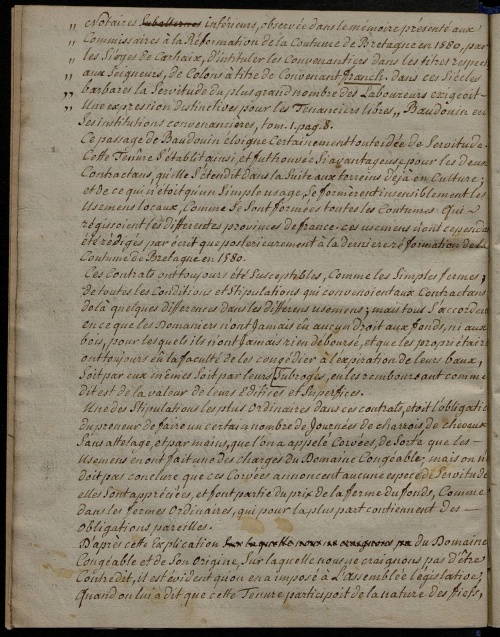 ,, Notaires Subalternes inférieurs, observée dans le mémoire présenté aux
,, Commissaires à la Réformation de la Coutume de Bretagne en 1580, par
,, les Sièges de Carhaix, d'intituler les Convenantiers dans les titres respec
,, aux Seigneurs, de Colons à titre de Convenant franch. dans ces Siécles
,, barbares la Servitude du plus grand nombre des Laboureurs exigeoit
,, Une expression distinctives pour les Tenanciers libres,, Baudouin en
Ses institutions convenancières, tom. 1. pag. 8.
Ce passage de Baudouin éloigne Certainement toute idée de Servitude.
Cette Tenûre S'établit ainsi, et fut trouvée Si avantageuse pour les deux
Contractans, qu'elle S'étendit dans la Suite aux terreins déjà en Culture;
et de ce qui n'étoit qu'un Simple usage, Se formèrent insensiblement les
Usemens locaux, Comme Se Sont formées toutes les Coutumes qui
régissoient les différentes provinces de france. ces usemens n'ont cependan
été rédigés par écrit que postérieurement à la dernière réformation de la
Coutume de Bretagne en 1580.
Ces Contrats ont toujours été Susceptibles, Comme les Simples fermes,
de toutes les Conditions et Stipulations qui convenoient aux Contractans
de là quelques différences dans les différens usemens; mais tous S'accordent
en ce que les Domaniers n'ont Jamais eu aucun droit aux fonds, ni aux
bois, pour lesquels ils n'ont Jamais rien déboursé, et que les propriétaires
ont toujours eu la faculté de les congédier à l'expiration de leurs baux,
Soit par eux mêmes Soit par leurs Subrogés, en les remboursant comme
dit est de la valeur de leurs Edifices et Superfices.
Une des Stipulations les plus Ordinaires dans ces contrats, étoit l'obligatio
du preneur de faire un certain nombre de Journées de charrois de chevaux
Sans attelage, et par mains, que l'on a appelé Corvées, de Sorte que les
Usemens en ont fait une des charges du Domaine Congéable; mais on n
doit pas conclure que ces Corvées annoncent aucune espèce de Servitude
elles Sont appréciées, et font partie du prix de la ferme du fonds, Comme
dans les fermes Ordinaires, qui pour la plus part contiennent des
obligations pareilles.
D'après cette Explication Sur laquelle nous ne craignons pa du Domaine
Congéable et de Son origine, Sur laquelle nous ne craignons pas d'être
Contredit, il est évident qu'on en a imposé à L'assemblée législative,
Quand on lui a dit que cette Tenure participoit de la nature des fiefs,